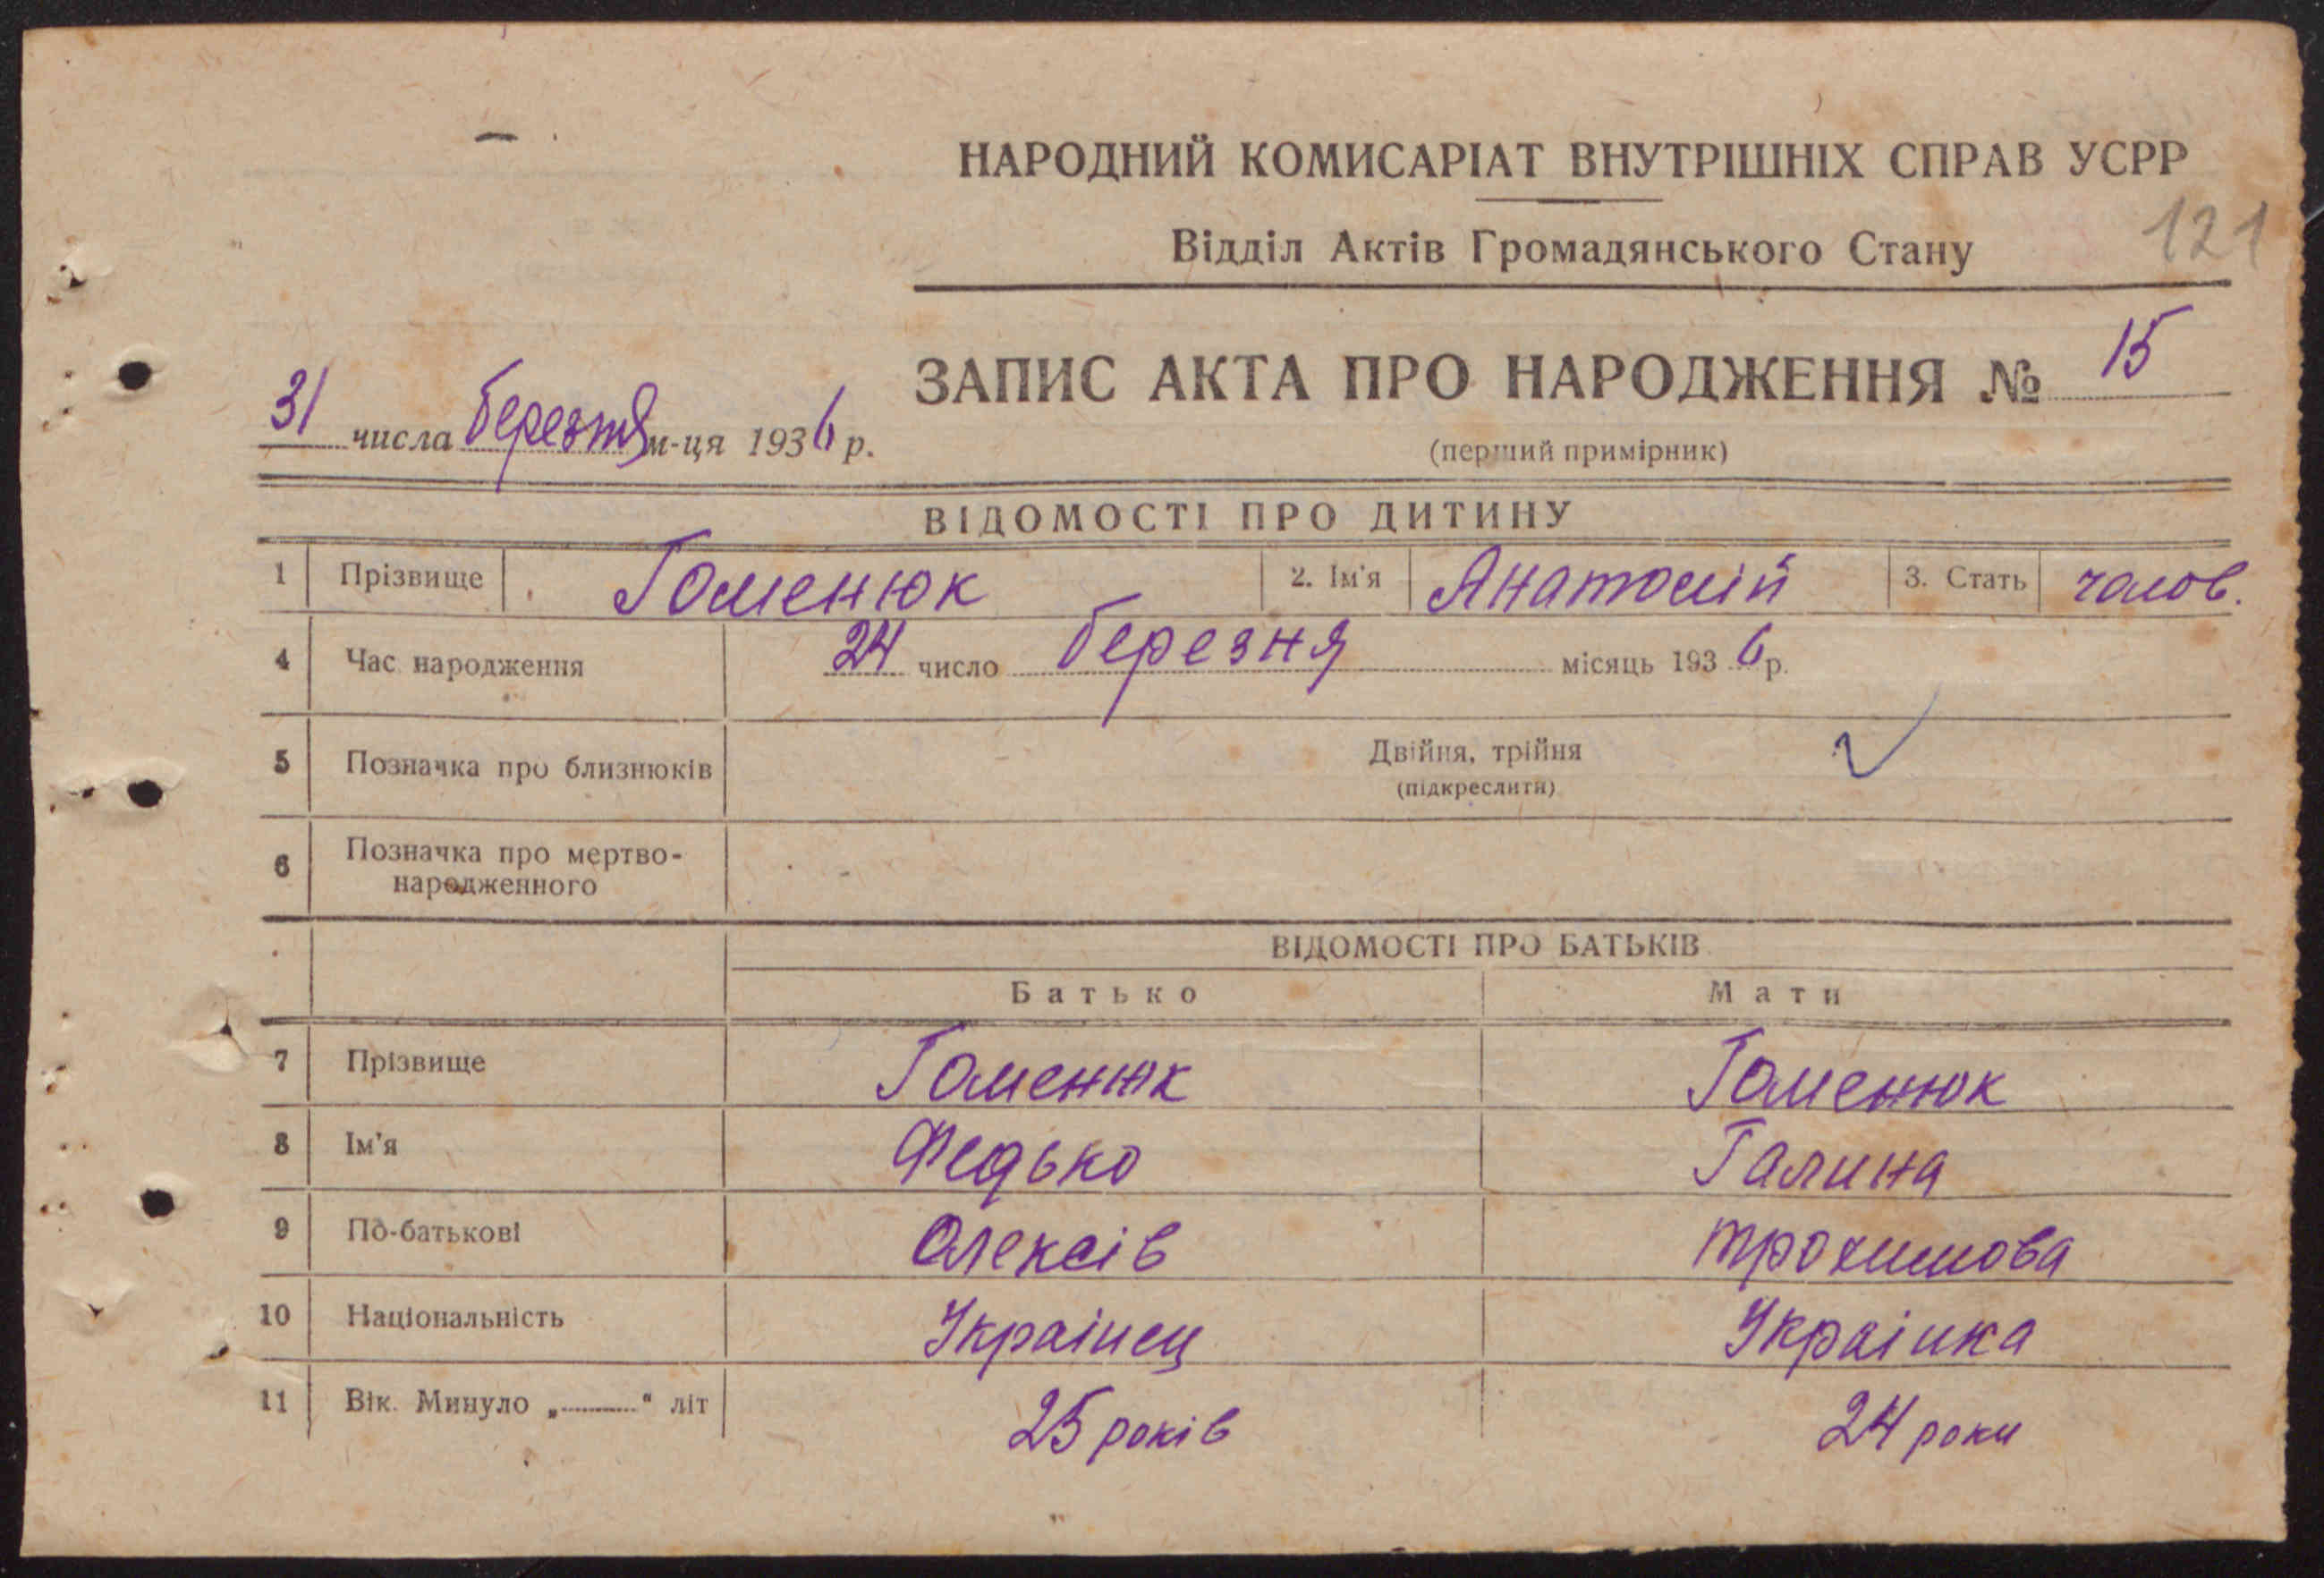 НАРОДНИЙ КОМИСАРІАТ ВНУТРІШНІХ СПРАВ УСРР
121
Відділ Актів Громадянського Стану
ЗАПИС АКТА ПРО НАРОДЖЕННЯ № 15
31 числа березня м-ця 1936 р.
(перший примірник)
ВІДОМОСТІ ПРО ДИТИНУ
1 Прізвище Гоменюк 2. Ім'я Анатолій 3. Стать чолов.
4 Час народження 24 число березня місяць 1936 р.
5 Позначка про близнюків Двійня, трійня
(підкреслити)
6 Позначка про мертво-
народженного
ВІДОМОСТІ ПРО БАТЬКІВ
Батько Мати
7 Прізвище Гоменюк Гоменюк
8 Ім'я Федько Галина
9 По-батькові Олексів Трохимова
10 Національність Українец Українка
11 Вік. Минуло „ “ літ 25 років 24 роки